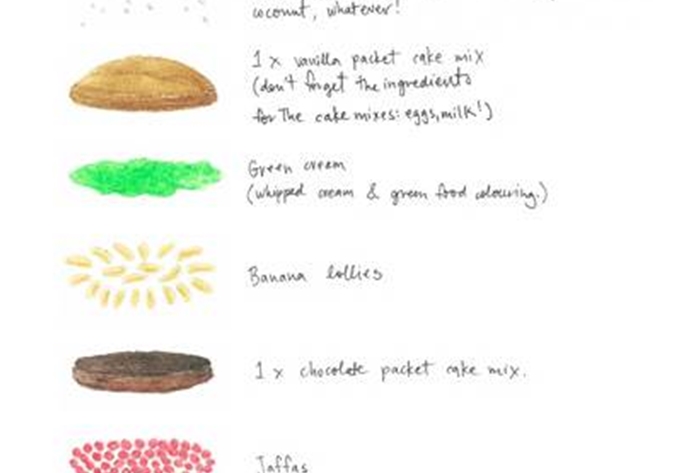 coconut, whatever!
1 x vanilla packet cake mix
(don't forget the ingredients
for the cake mixes: eggs, milk!)
Green cream
(whipped cream & green food colouring.)
Banana lollies
1 x chocolate packet cake mix.
Jaffas